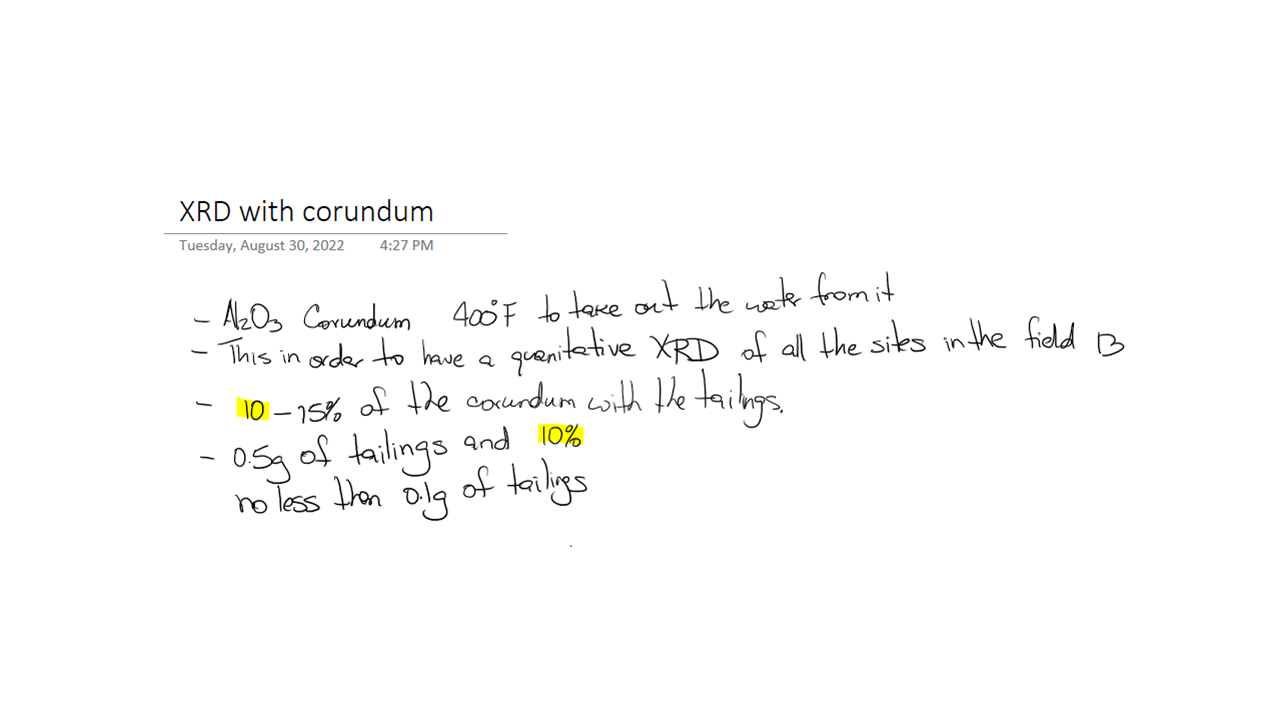 XRD with corundum
Tuesday, August 30, 2022 4:27 PM
- Al2O3 Corundum 400°F to take out the water from it
- This in order to have a quanitative XRD of all the sites in the field B
- 10 - 15% of the corundum with the tailings.
- 0.5g of tailings and 10%
no less than 0.1g of tailings